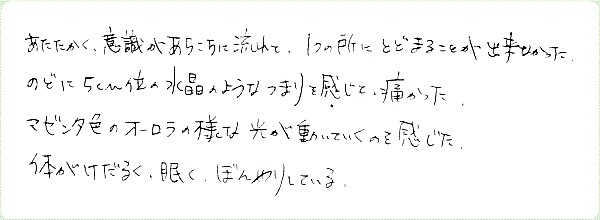 あたたかく、意識があちこちに流れて、1つの所にとどまることが出来なかった.
のどに5cm位の水晶のようなつまりを感じて、痛かった.
マゼンタ色のオーロラの様な光が動いていくのを感じた.
体がけだるく、眠く、ぼんやりしている.